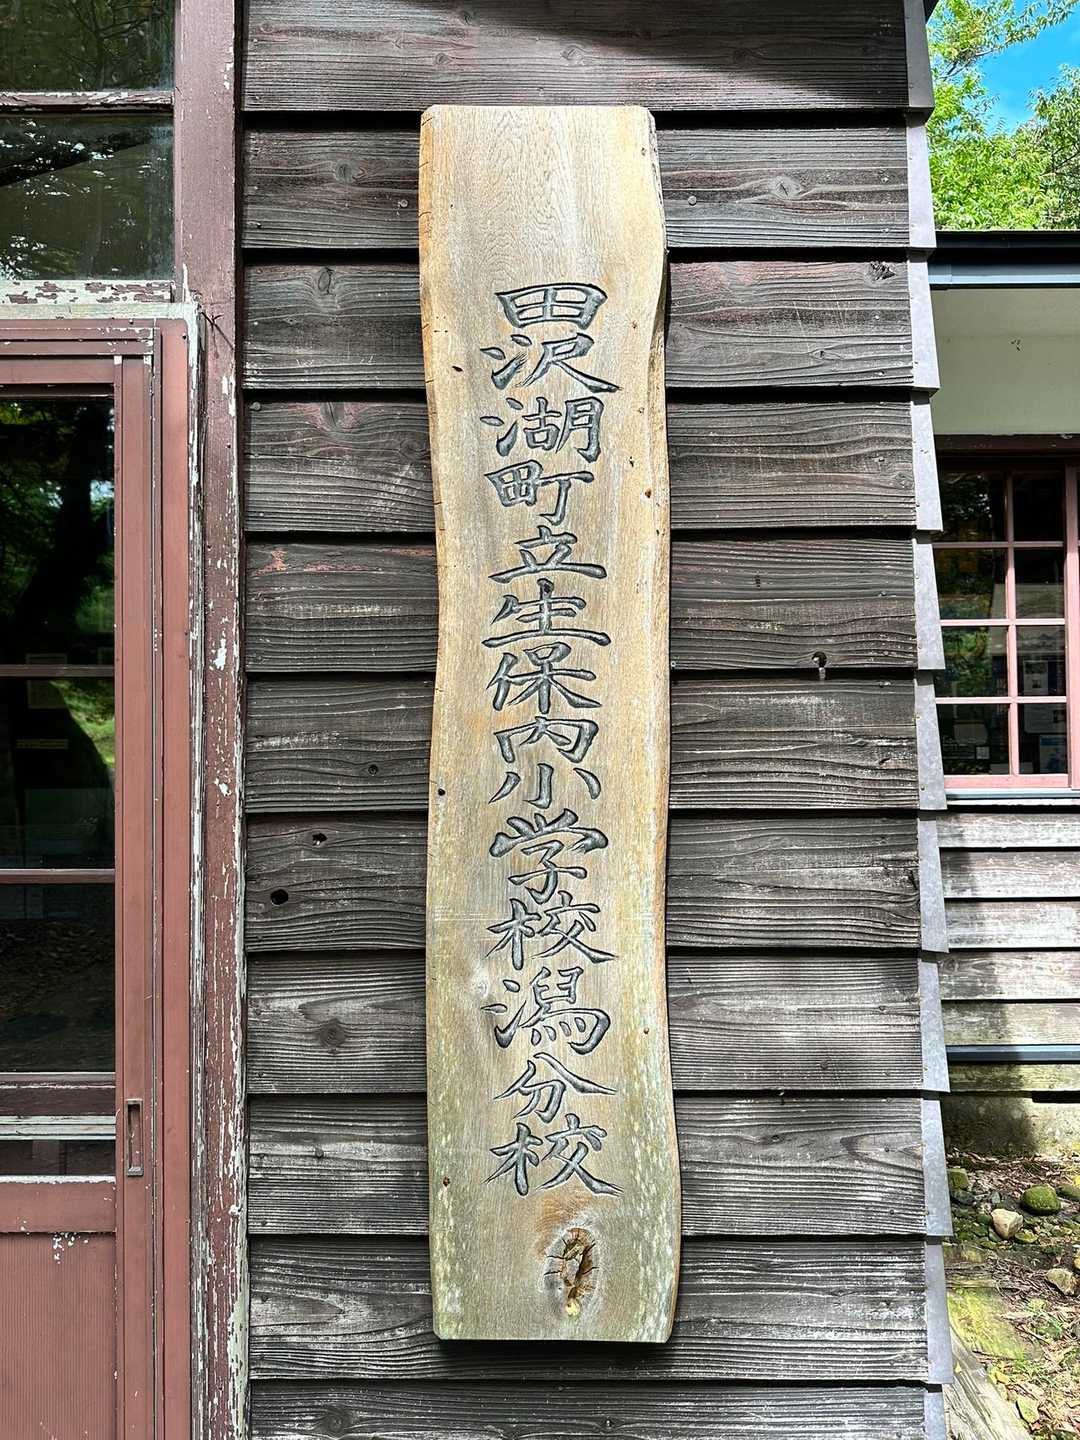 田沢湖町立生保内小学校潟分校